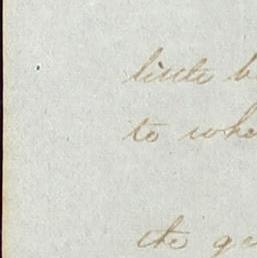 little b
to whe
the ge